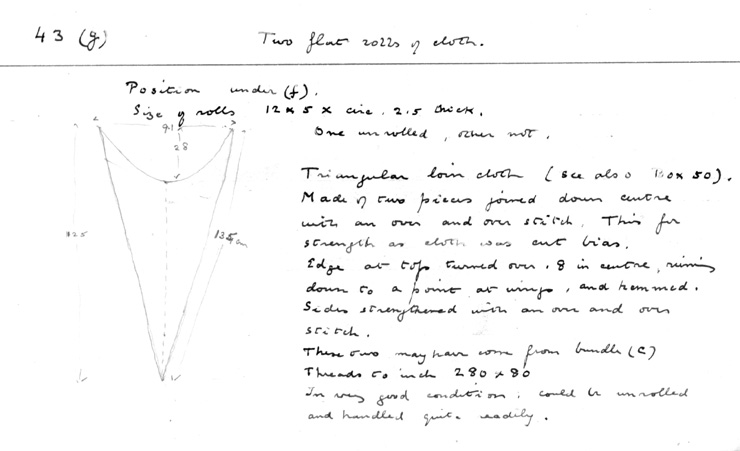 43 (g)
Two flat rolls of cloth.
Position under (f).
Size of rolls 12 x 5 x circ. 2.5 thick.
One unrolled, other not.
91
28
Triangular loin cloth (see also Box 50).
Made of two pieces joined down centre
with an over and over stitch. This for
strength as cloth was cut bias.
135 cm
Edge at top turned over .8 in centre, running
down to a point at wings, and hemmed.
Sides strengthened with an over and over
stitch.
These two may have come from bundle (c)
Threads to inch 280 x 80
In very good condition, could be unrolled
and handled quite readily.